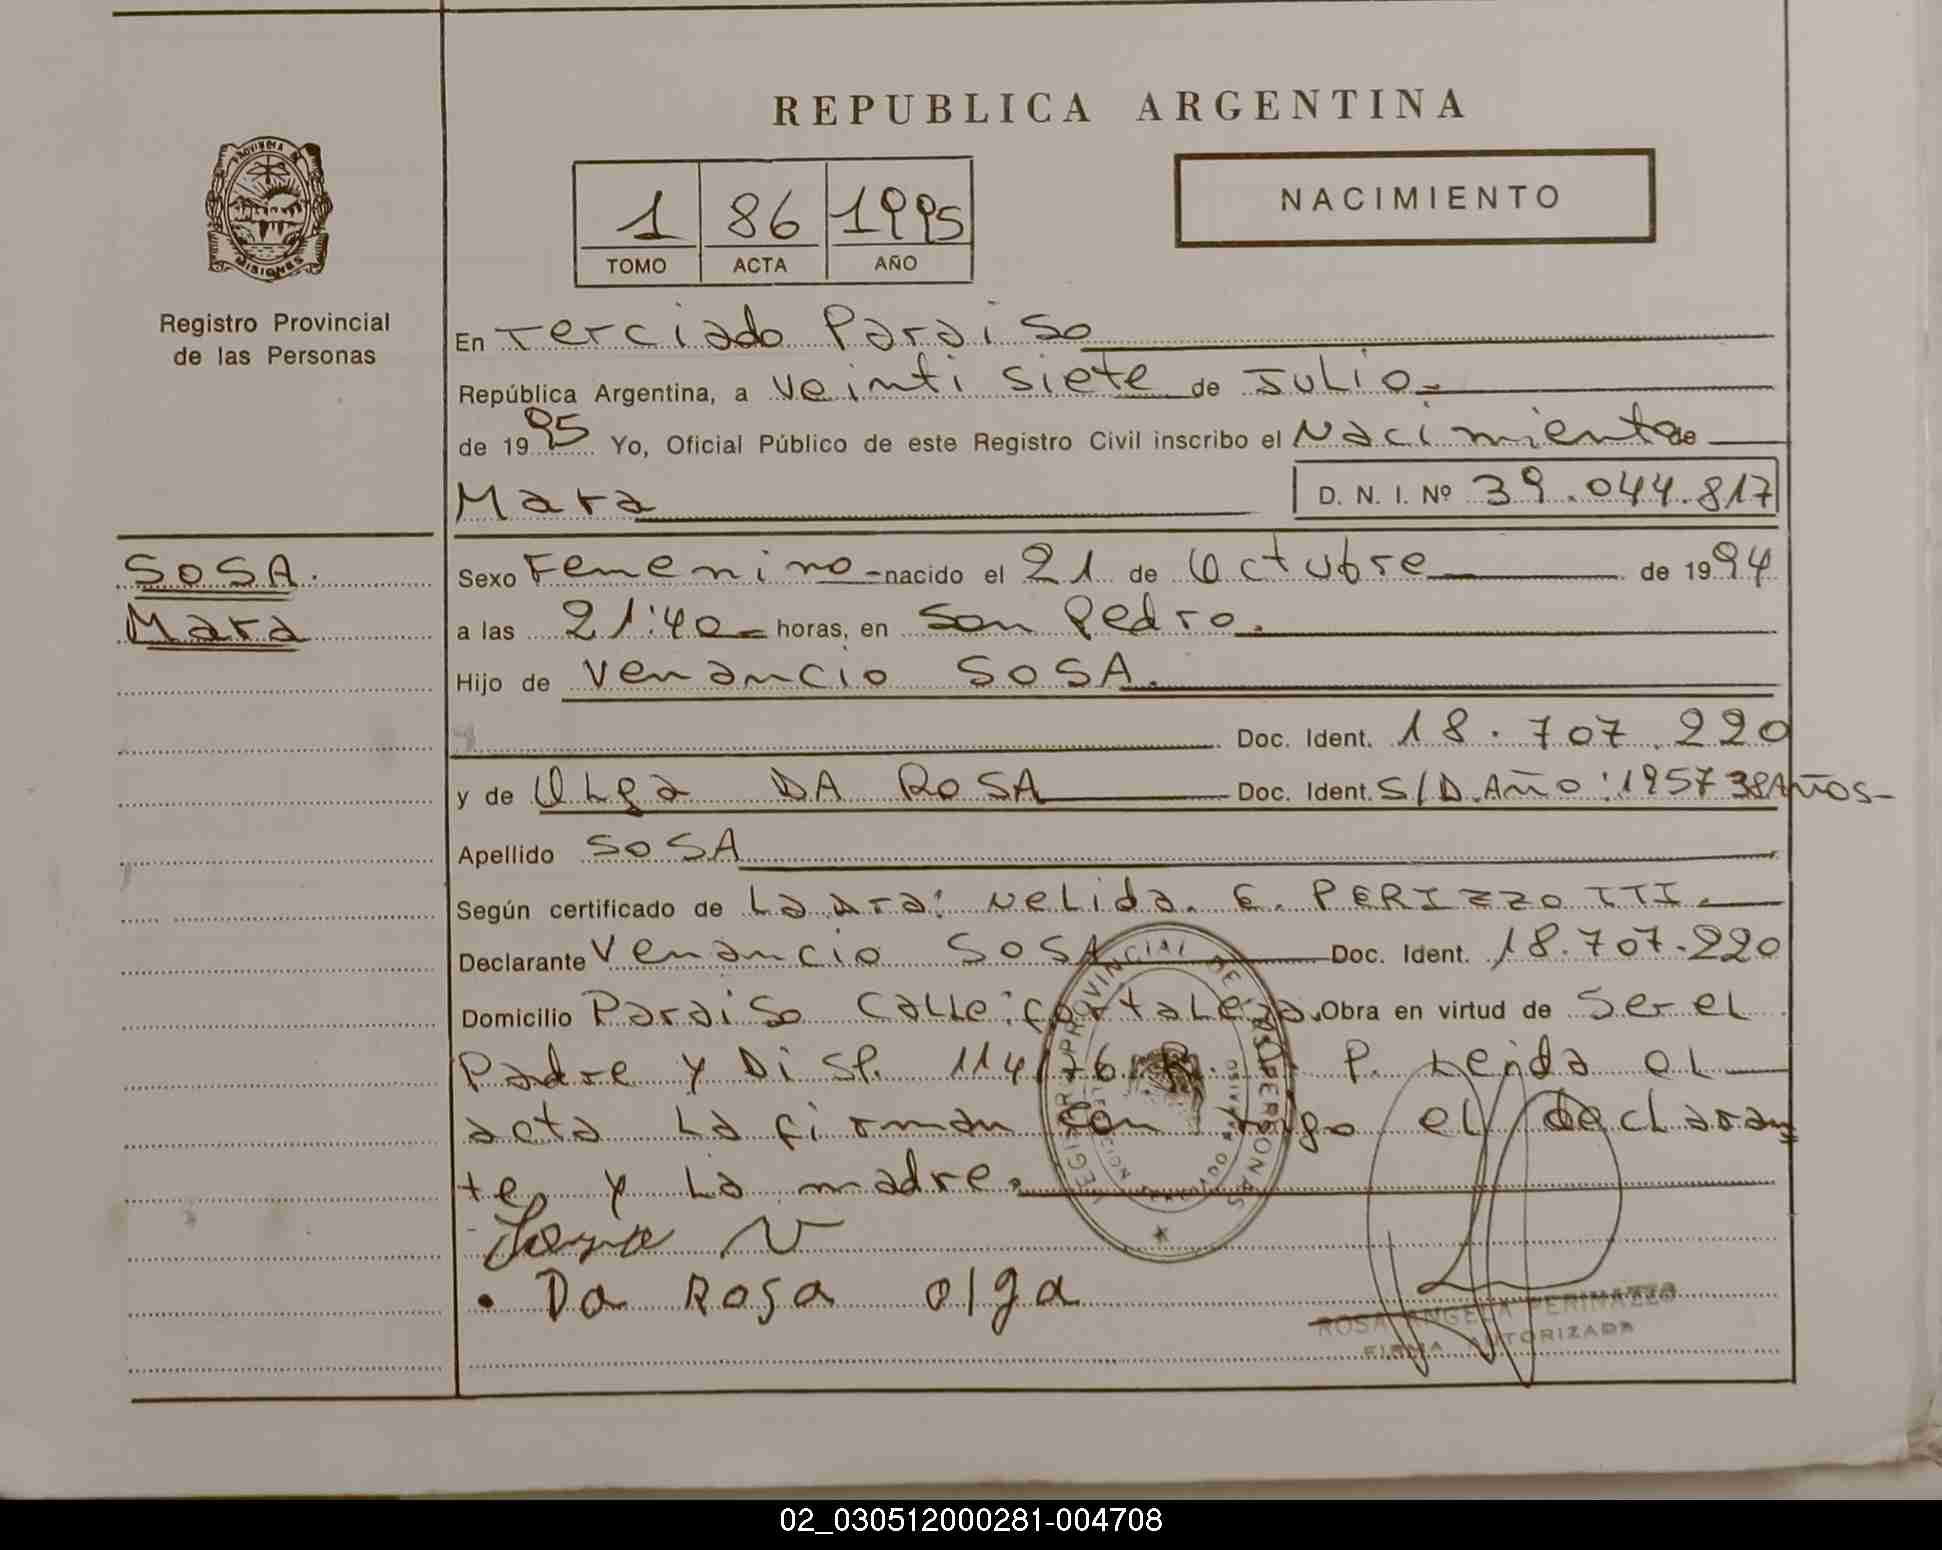 REPUBLICA ARGENTINA
PROVINCIA DE
MISIONES
Registro Provincial
de las Personas
1 86 1995
TOMO ACTA AÑO
NACIMIENTO
En Terciado Paraiso
República Argentina, a veinti siete de Julio.
de 1995 Yo, Oficial Público de este Registro Civil inscribo el Nacimiento de
Mara D. N. I. Nº 39.044.817
SOSA.
Mara
Sexo Femenino nacido el 21 de Octubre de 1994
a las 21:40 horas, en San Pedro.
Hijo de Venancio SOSA.
Doc. Ident. 18.707.220
y de Olga DA ROSA Doc. Ident. S/D. Año: 1957 38 Años-
Apellido SOSA
Según certificado de La Dra: Nelida. E. PERIZZOTTI.
Declarante Venancio SOSA Doc. Ident. 18.707.220
Domicilio Paraiso Calle: fortaleza. Obra en virtud de Ser el
Padre y Disp. 114/76 R. P. Leida el
acta La firman con migo el declaran
te, y La madre.
V
Da Rosa olga
ROSA ANGELA PERINAZZO
FIRMA AUTORIZADA
02_030512000281-004708